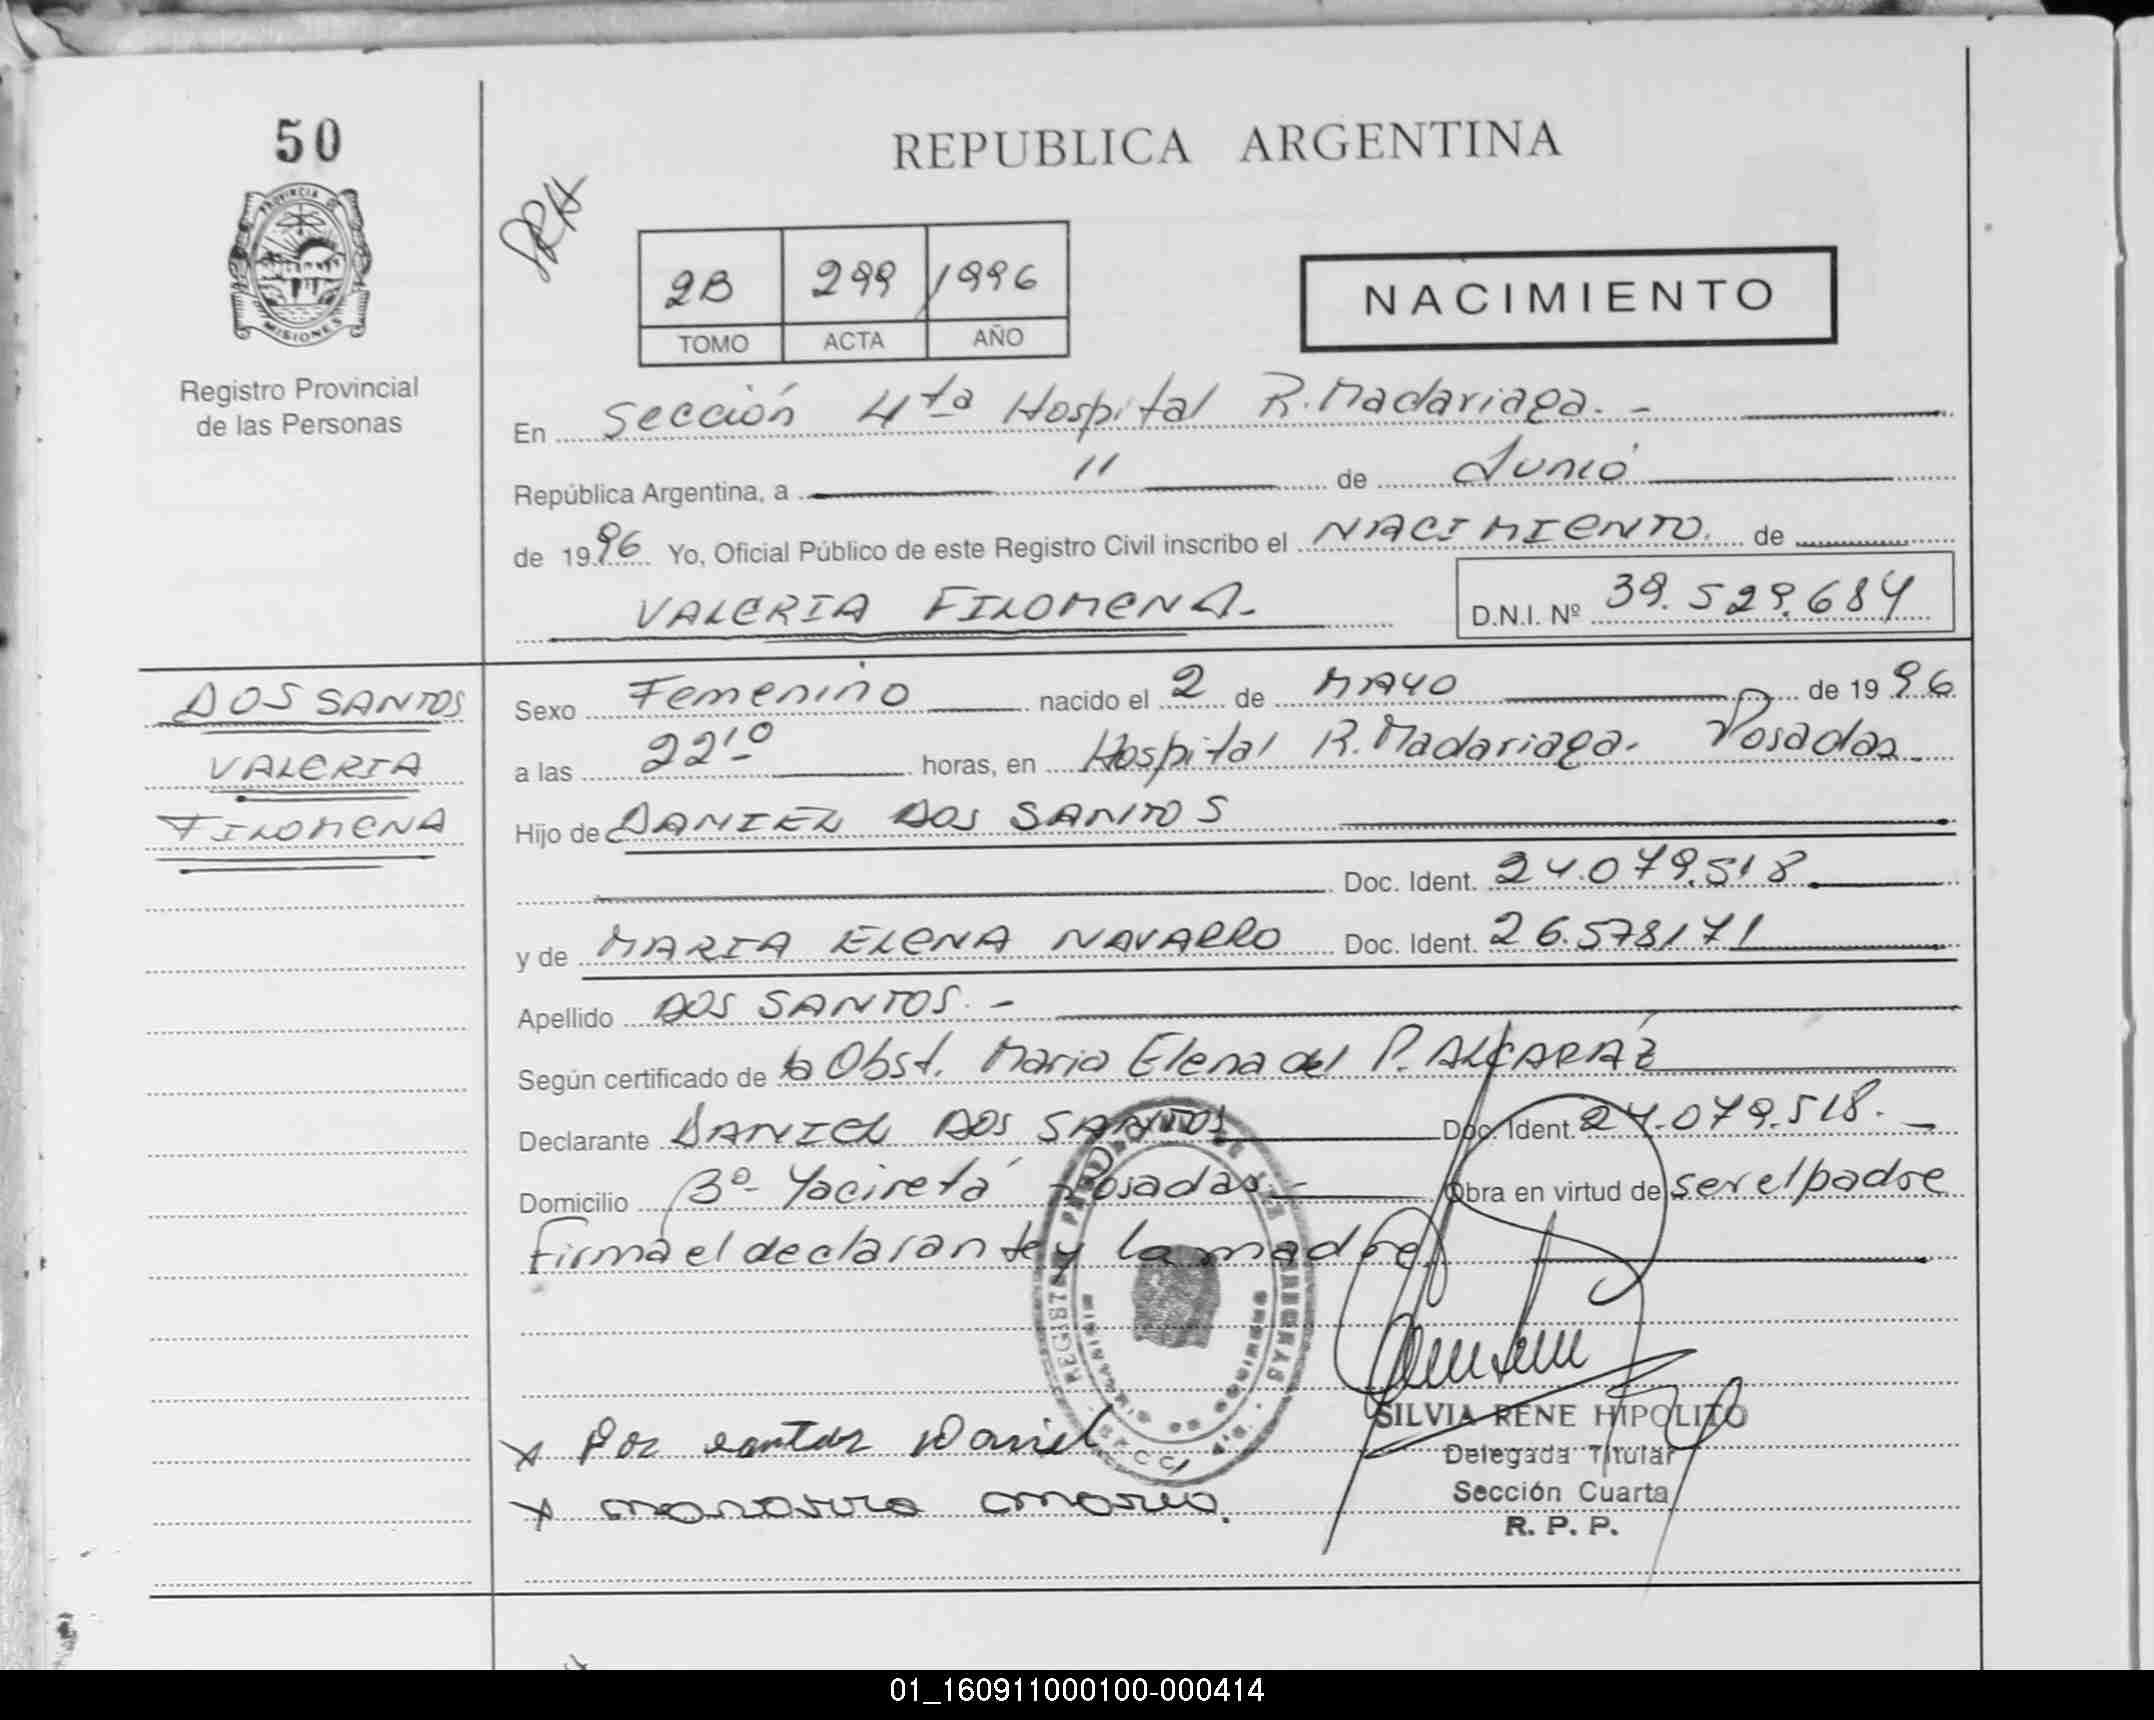 50
REPUBLICA ARGENTINA
SRH
PROVINCIA D
MISIONES
2B 299 1996
TOMO ACTA AÑO
NACIMIENTO
Registro Provincial
de las Personas
En Sección 4ta Hospital R. Madariaga. -
República Argentina, a 11 de Junio
de 1996 Yo, Oficial Público de este Registro Civil inscribo el NACIMIENTO. de
VALERIA FILOMENA.- D.N.I. Nº 39.529.684
DOS SANTOS
VALERIA
FILOMENA
Sexo Femenino nacido el 2 de MAYO de 1996
a las 22'º horas, en Hospital R. Madariaga. Posadas
Hijo de DANIEL DOS SANTOS
Doc. Ident. 24.079.518
y de MARIA ELENA NAVARRO Doc. Ident. 26.578171
Apellido DOS SANTOS. -
Según certificado de la Obst. Maria Elena del P. ALCARAZ
Declarante DANIEL DOS SANTOS Doc. Ident. 24.079.518.
Domicilio Bº- Yacireta Posadas - Obra en virtud de ser el padre
Firma el declarante y la madre
SILVIA RENE HIPOLITO
x Dos santos Daniel
Delegada Titular
Sección Cuarta
x maria
R. P. P.
01_160911000100-000414